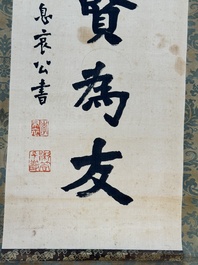 賢為友
息哀公書